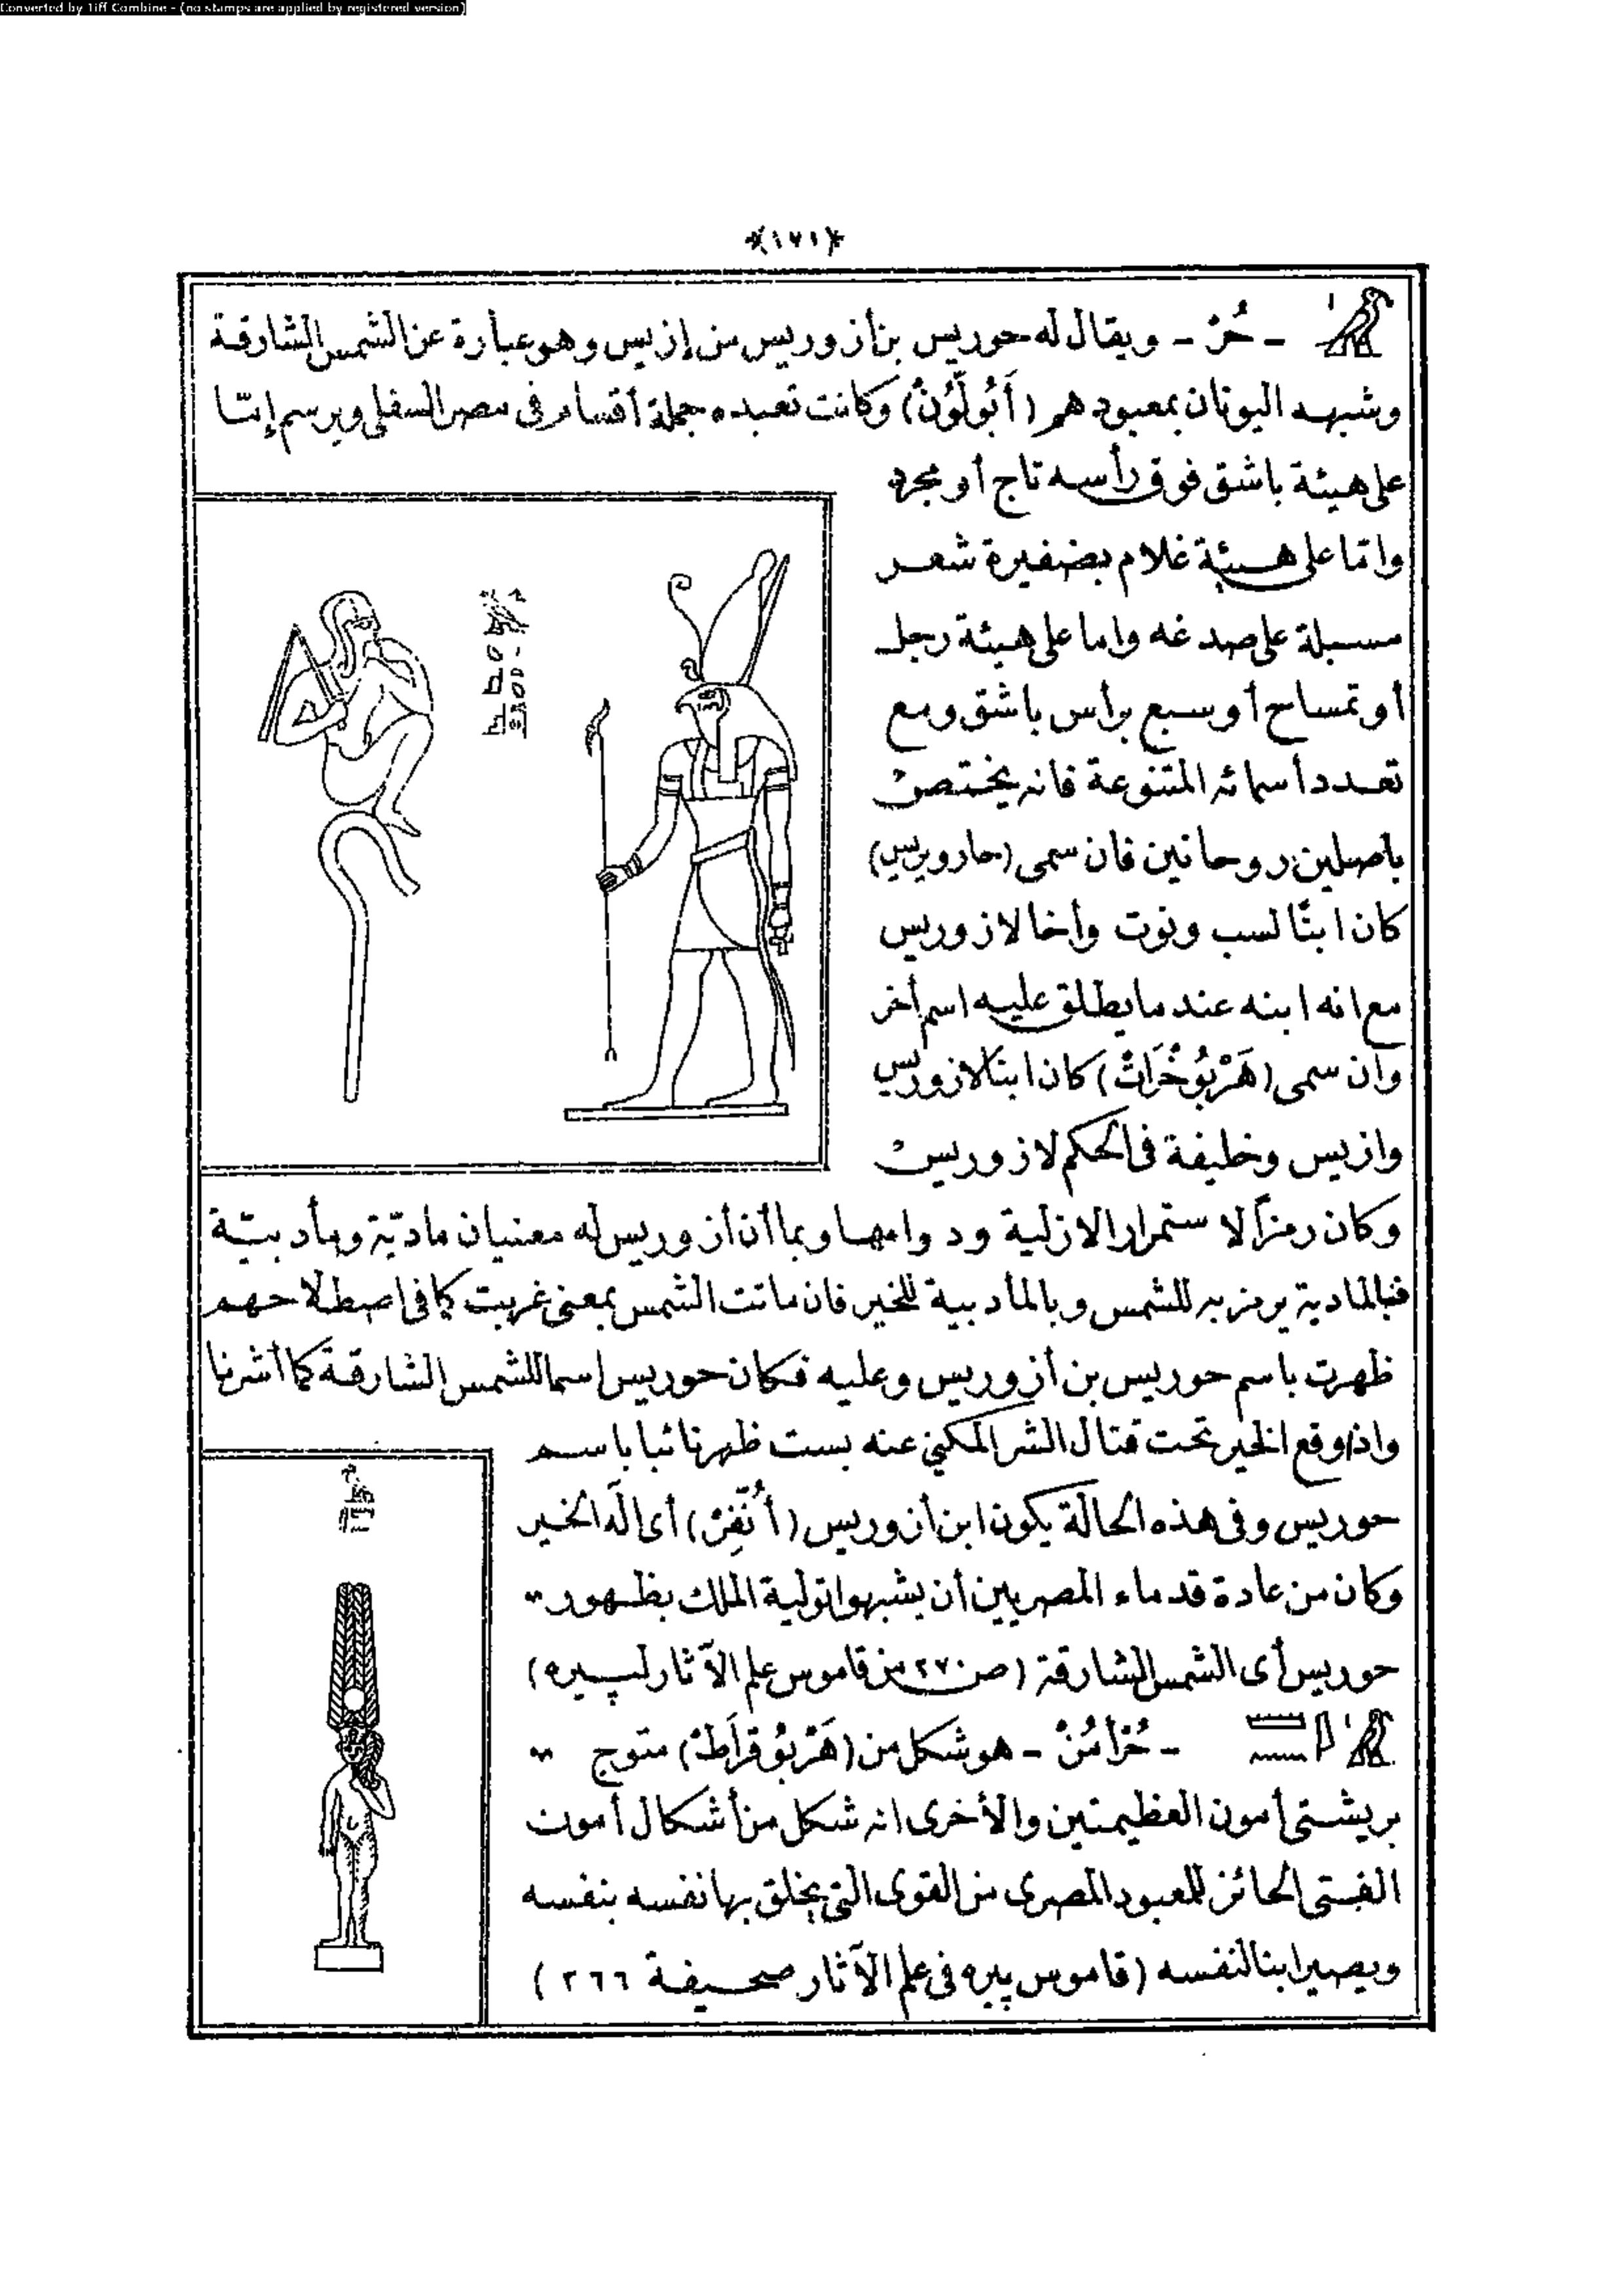 Converted by Tiff Combine - (no stamps are applied by registered version)
﴿١٧١﴾
- حُرْ - ويقال له حوريس بن أزوريس من إزيس وهو عبارة عن الشمس الشارقة
وشبهه اليونان بمعبودهم (أَبُولّوُنْ) وكانت تعبده جملة أقسام فى مصر السفلى ويرسم إمّا
على هيئة باشق فوق رأسه تاج أو مجرد
وامّا على هيئة غلام بضفيرة شعر
مسبلة على صدغه واما على هيئة رجل
أو تمساح أو سبع برأس باشق ومع
تعدد أسمائه المتنوعة فانه يختص
باصلين روحانين فان سمى (حارويريس)
كان ابنًا لسب ونوت وأخا لازوريس
مع انه ابنه عند ما يطلق عليه اسم أخر
وان سمى (هَرْبُوخُرَاتْ) كان ابنًا لازوريس
وازيس وخليفة فى الحكم لازوريس
وكان رمزاً لاستمرار الازلية ودوامها وبما أن أزوريس له معنيان مادّية ومأدبيّة
فبالمادية يرمز به للشمس وبالمأدبية للخير فان ماتت الشمس بمعنى غربت كما فى اصطلاحهم
ظهرت باسم حوريس بن أزوريس وعليه فكان حوريس اسما للشمس الشارقة كما أشرنا
واذا وقع الخير تحت قتال الشر المكنى عنه بست ظهر نائبا باسم
حوريس وفى هذه الحالة يكون ابن أزوريس (أُنّفِرْ) أى الَه الخير
وكان من عادة قدماء المصريين أن يشبهوا تولية الملك بظهور
حوريس أى الشمس الشارقة (ص ٢٧٠ من قاموس علم الآثار لپيره)
- حُرْأمُنْ - هو شكل من (هَرْبُوقرَاطْ) متوج
بريشتى أمون العظيمتين والأخرى انه شكل من أشكال أمون
الفتى الحائز للمعبود المصرى من القوى التى يخلق بها نفسه بنفسه
ويصير ابنا لنفسه (قاموس پيره فى علم الآثار صحيفة ٢٦٦)